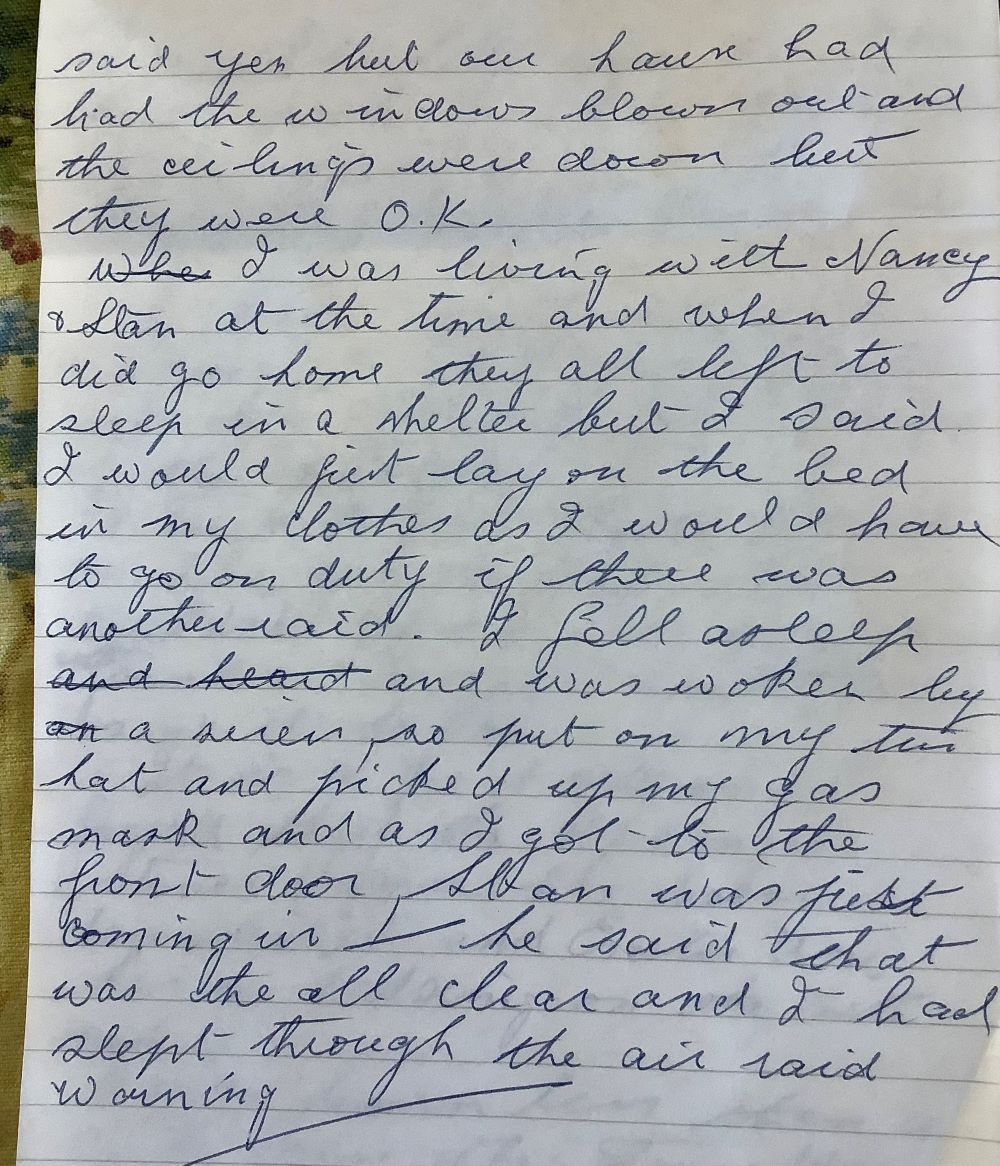 said yes but our house had
had the windows blown out and
the ceilings were down but
they were O.K.
Whe I was living with Nancy
& Stan at the time and when I
did go home they all left to
sleep in a shelter but I said
I would just lay on the bed
in my clothes as I would have
to go on duty if there was
another raid. I fell asleep
and heard and was woken by
an a siren, so put on my tin
hat and picked up my gas
mask and as I got to the
front door, Stan was just
coming in he said that
was the all clear and I had
slept through the air raid
warning